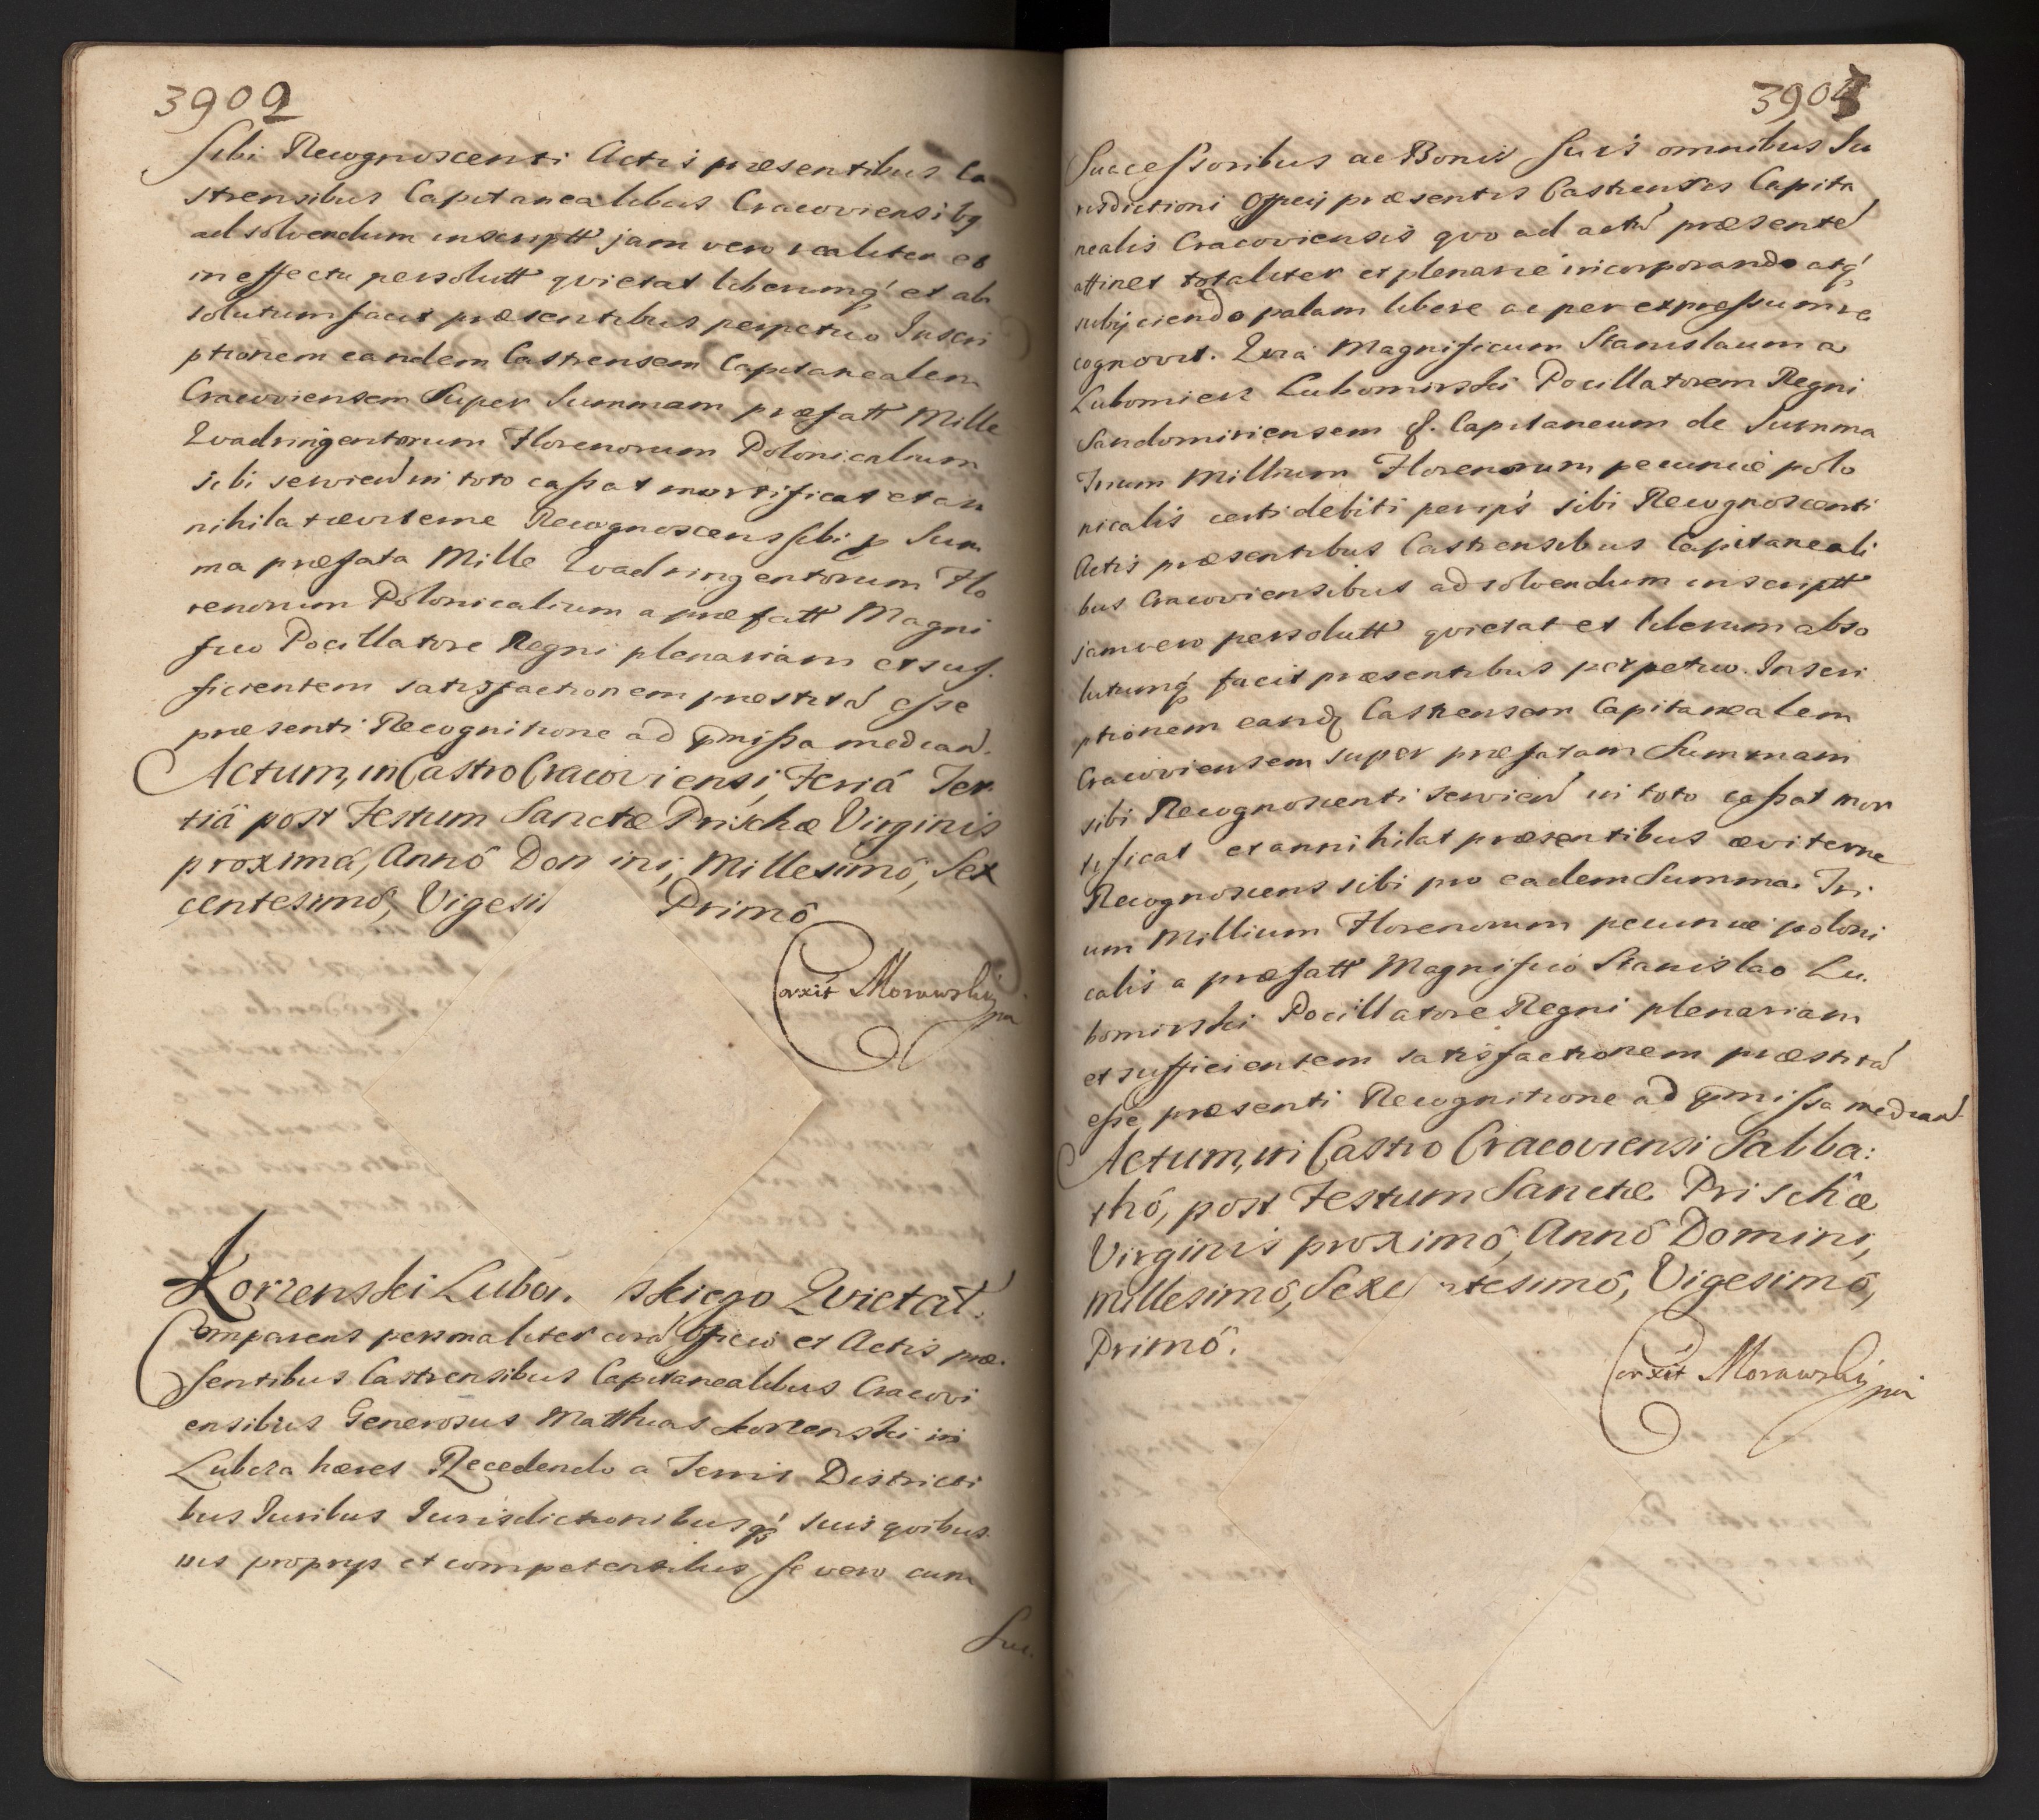 3902
sibi Recognoscenti Actis præsentibus Ca
strensibus Capitanealibus Cracoviensibq
ad solvendum inscriptt jam vero realiter et
in effectu persolutt qvietat liberumq et ab
solutum facit præsentibus perpetuo Inscri
ptionem eandem Castrensem Capitanealem
Cracoviensem Super Summam præfatt Mille
Qvadringentorum Florenorum Polonicalium
sibi serviend in toto cassat mortificat et an
nihilat æviterne Recognoscens sibi p Sum
ma præfata Mille Qvadringentorum Flo
renorum Polonicalium a præfatt Magni
fico Pocillatore Regni plenariam et suf.
ficientem satisfactionem præstitá esse
præsenti Recognitione ad pmissa mediand.
Actum, in Castro Cracoviensi, Feriá Ter
tiâ post Festum Sanctæ Prischæ Virginis
proximá, Annô Domini, Millesimô, Sex
centesimô, Vigesi Primô
Corxit Morawski mp
Korzenski Lubo. skiego Qvietat.
Comparens personaliter corá Officio et Actis præ.
sentibus Castrensibus Capitanealibus Cracovi
ensibus Generosus Matthias Korzenski in
Lubcza hæres Recedendo a Terris Districti
bus Iuribus Iurisdictionibusq suis qvibus
vis proprys et competentibus, se vero cum
Suc.
3903
Successoribus ac Bonis suis omnibus Iu
risdictioni Officij præsentis Castrensis Capita
nealis Cracoviensis qvo ad actú præsenté
attinet totaliter et plenarie incorporando atq
subijciendo palam libere ac per expressum re
cognovit. Qvia Magnificum Stanislaum a
Lubomierz Lubomirski Pocillatorem Regni
Sandomiriensem &. Capitaneum de Summa
Trium Millium Florenorum pecuniæ polo
nicalis certi debiti per ips sibi Recognoscenti
Actis præsentibus Castrensibus Capitaneali
bus Cracoviensibus ad solvendum inscriptt
jam vero persolutt qvietat et liberum abso
lutumq facit præsentibus perpetuo. Inscri
ptionem eandq Castrensem Capitanealem
Cracoviensem super præfatam Summam
sibi Recognoscenti serviend in toto cassat mor
tificat et annihilat præsentibus æviterne
Recognoscens sibi pro eadem Summa Tri
um Millium Florenorum pecuniæ poloni
calis a præfatt Magnifico Stanislao Lu.
bomirski Pocillatore Regni plenariam
et sufficientem satisfactionem præstitá
esse præsenti Recognitione ad pmissa mediand.
Actum, in Castro Cracoviensi Sabba:
thô, post Festum Sanctæ Prischæ
Virginis proximô, Annô Domini,
Millesimô, Sexcentesimô, Vigesimô,
Primô.
Corxit Morawski mp